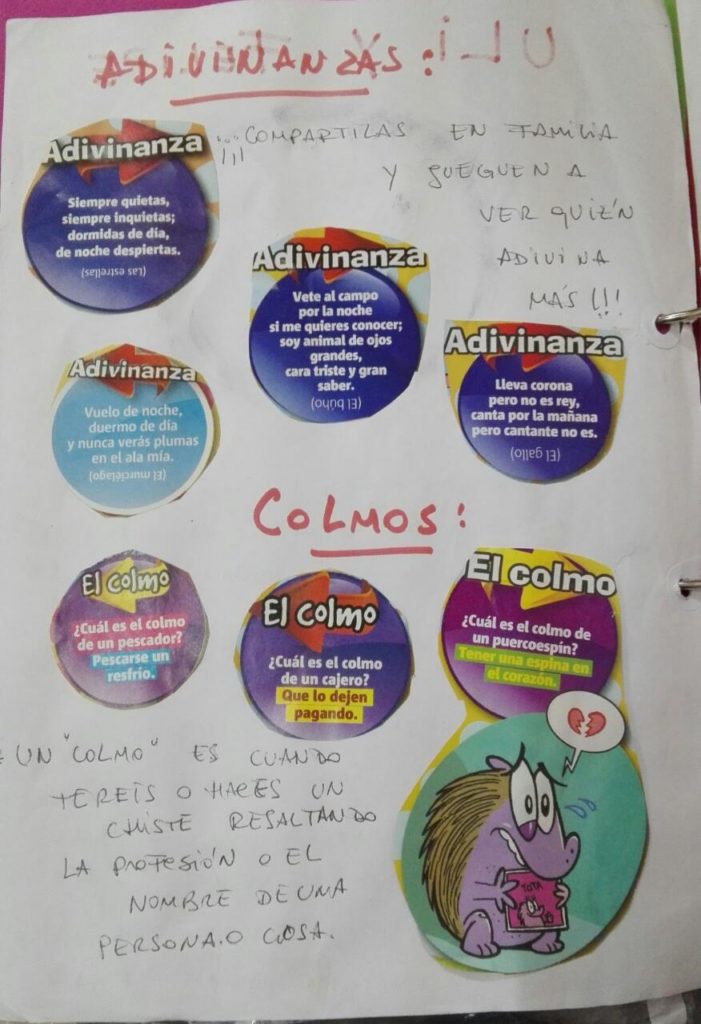 ADIVINANZAS:
¡¡¡... COMPARTILAS EN FAMILIA
Y JUEGUEN A
VER QUIÉN
ADIVINA
MÁS!!!
Adivinanza
Siempre quietas,
siempre inquietas;
dormidas de día,
de noche despiertas.
(Las estrellas)
Adivinanza
Vete al campo
por la noche
si me quieres conocer;
soy animal de ojos
grandes,
cara triste y gran
saber.
(El búho)
Adivinanza
Lleva corona
pero no es rey,
canta por la mañana
pero cantante no es.
(El gallo)
Adivinanza
Vuelo de noche,
duermo de día
y nunca verás plumas
en el ala mía.
(El murciélago)
COLMOS:
El colmo
¿Cuál es el colmo
de un pescador?
Pescarse un
resfrío.
El colmo
¿Cuál es el colmo
de un cajero?
Que lo dejen
pagando.
El colmo
¿Cuál es el colmo de
un puercoespín?
Tener una espina en
el corazón.
UN "COLMO" ES CUANDO
TE REÍS O HACES UN
CHISTE RESALTANDO
LA PROFESIÓN O EL
NOMBRE DE UNA
PERSONA O COSA.
TOTA